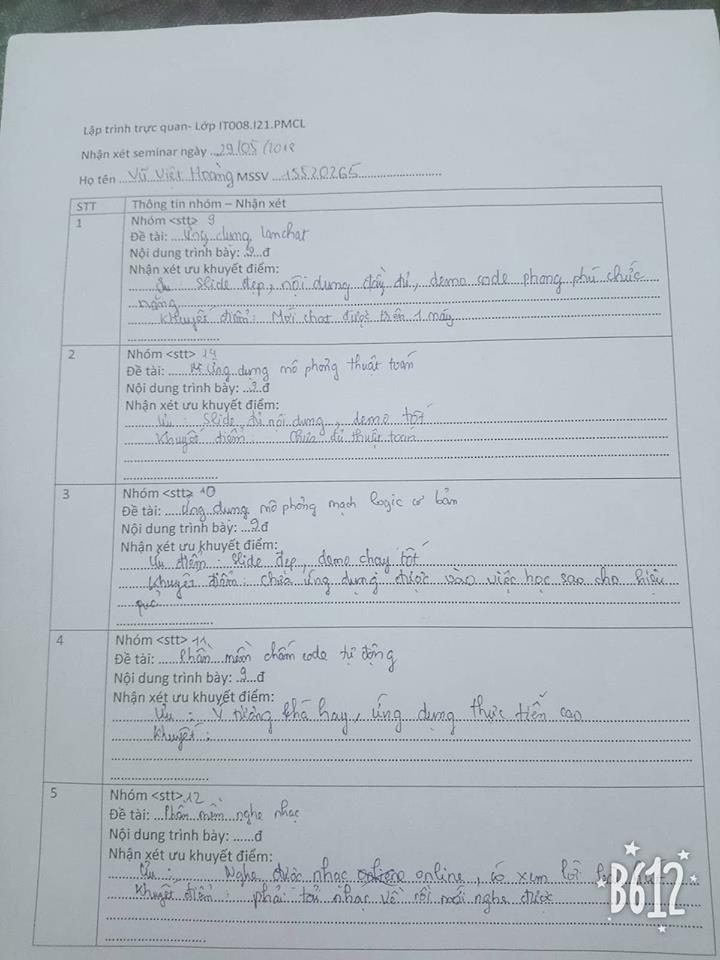 Lập trình trực quan- Lớp IT008.I21.PMCL
Nhận xét seminar ngày ...29/05/2018
Họ tên ...Vũ Việt Hoàng MSSV ...15520265...
STT Thông tin nhóm – Nhận xét
1 Nhóm <stt> 9
Đề tài: ....Ứng dụng lanchat
Nội dung trình bày: ..9..đ
Nhận xét ưu khuyết điểm:
Ưu : Slide đẹp, nội dung đầy đủ, demo code phong phú chức
năng
Khuyết điểm : Mới chat được trên 1 máy
2 Nhóm <stt> 14
Đề tài: ....Ứng dụng mô phỏng thuật toán
Nội dung trình bày: ..9..đ
Nhận xét ưu khuyết điểm:
Ưu : Slide đủ nội dung, demo tốt
Khuyết điểm : Chưa đủ thuật toán
3 Nhóm <stt> 10
Đề tài: ....Ứng dụng mô phỏng mạch logic cơ bản
Nội dung trình bày: ...9.đ
Nhận xét ưu khuyết điểm:
Ưu điểm : Slide đẹp, demo chạy tốt
Khuyết điểm : chưa ứng dụng được vào việc học sao cho hiệu
quả
4 Nhóm <stt> 11
Đề tài: ....Phần mềm chấm code tự động
Nội dung trình bày: ..9...đ
Nhận xét ưu khuyết điểm:
Ưu : Ý tưởng khá hay, ứng dụng thực tiễn cao
Khuyết :
5 Nhóm <stt> 12
Đề tài: ...Phần mềm nghe nhạc
Nội dung trình bày: ......đ
Nhận xét ưu khuyết điểm:
Ưu : Nghe được nhạc online, có xem lời
Khuyết điểm : phải tải nhạc về rồi mới nghe được
B612